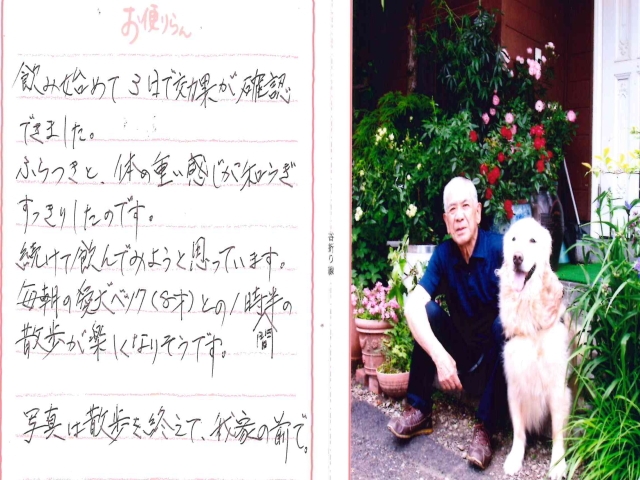 お便りらん
飲み始めて3日で効果が確認
できました。
ふらつきと、体の重い感じが和らぎ
すっきりしたのです。
続けて飲んでみようと思っています。
毎朝の愛犬ベック(8才)との1時半の
散歩が楽しくなりそうです。 間
写真は散歩を終えて、我家の前で。
谷折り線